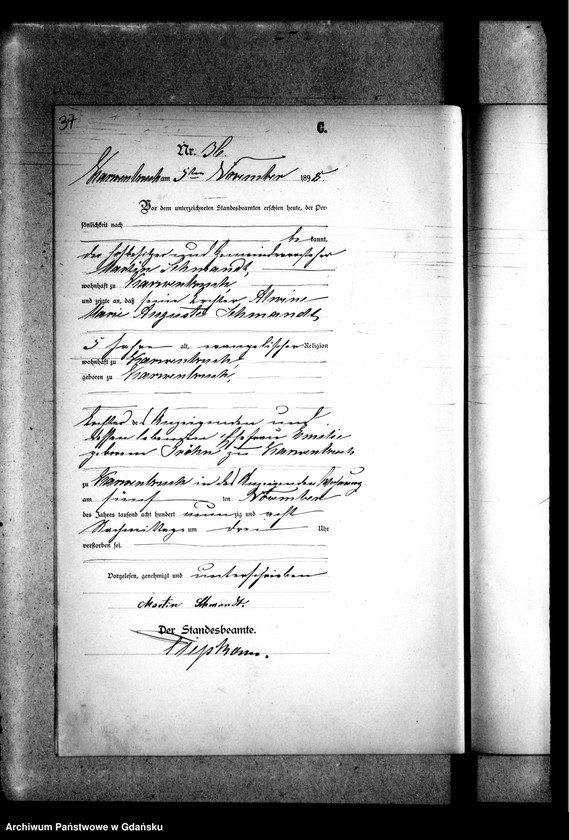 37
C.
Nr. 36.
Karwenbruch am 5ten November 1898.
Vor dem unterzeichneten Standesbeamten erschien heute, der Per-
sönlichkeit nach
be kannt,
der Hofbesitzer und Gemeindevorsteher
Martin Schwandt,
wohnhaft zu Karwenbruch,
und zeigte an, daß seine Tochter, Alwine
Marie Auguste Schwandt,
5 Jahre alt, evangelischer Religion
wohnhaft zu Karwenbruch,
geboren zu Karwenbruch,
Tochter des Anzeigenden und
dessen Ehefrau Emilie
geborenen zu Karwenbruch
zu Karwenbruch in des Anzeigenden Wohnung
am fünften November
des Jahres tausend acht hundert neunzig und acht
Nachmittags um drei Uhr
verstorben sei.
Vorgelesen, genehmigt und unterschrieben
Martin Schwandt.
Der Standesbeamte.